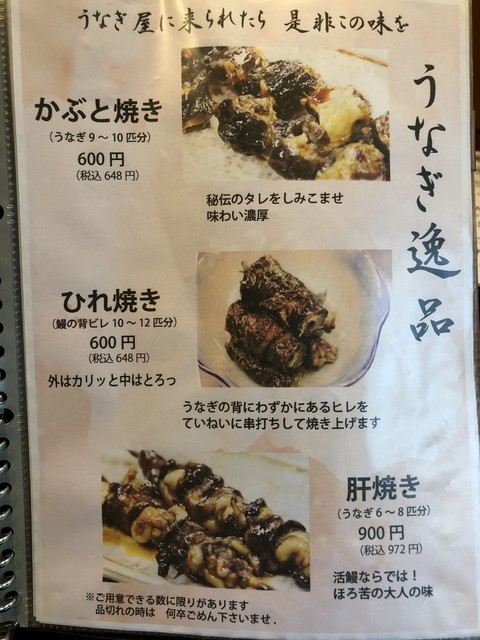 うなぎ屋に来られたら 是非この味を
うなぎ逸品
かぶと焼き
（うなぎ9～10匹分）
600円
（税込648円）
秘伝のタレをしみこませ
味わい濃厚
ひれ焼き
（鰻の背ビレ10～12匹分）
600円
（税込648円）
外はカリッと中はとろっ
うなぎの背にわずかにあるヒレを
ていねいに串打ちして焼き上げます
肝焼き
（うなぎ6～8匹分）
900円
（税込972円）
活鰻ならでは！
ほろ苦の大人の味
※ご用意できる数に限りがあります
品切れの時は 何卒ごめん下さいませ．